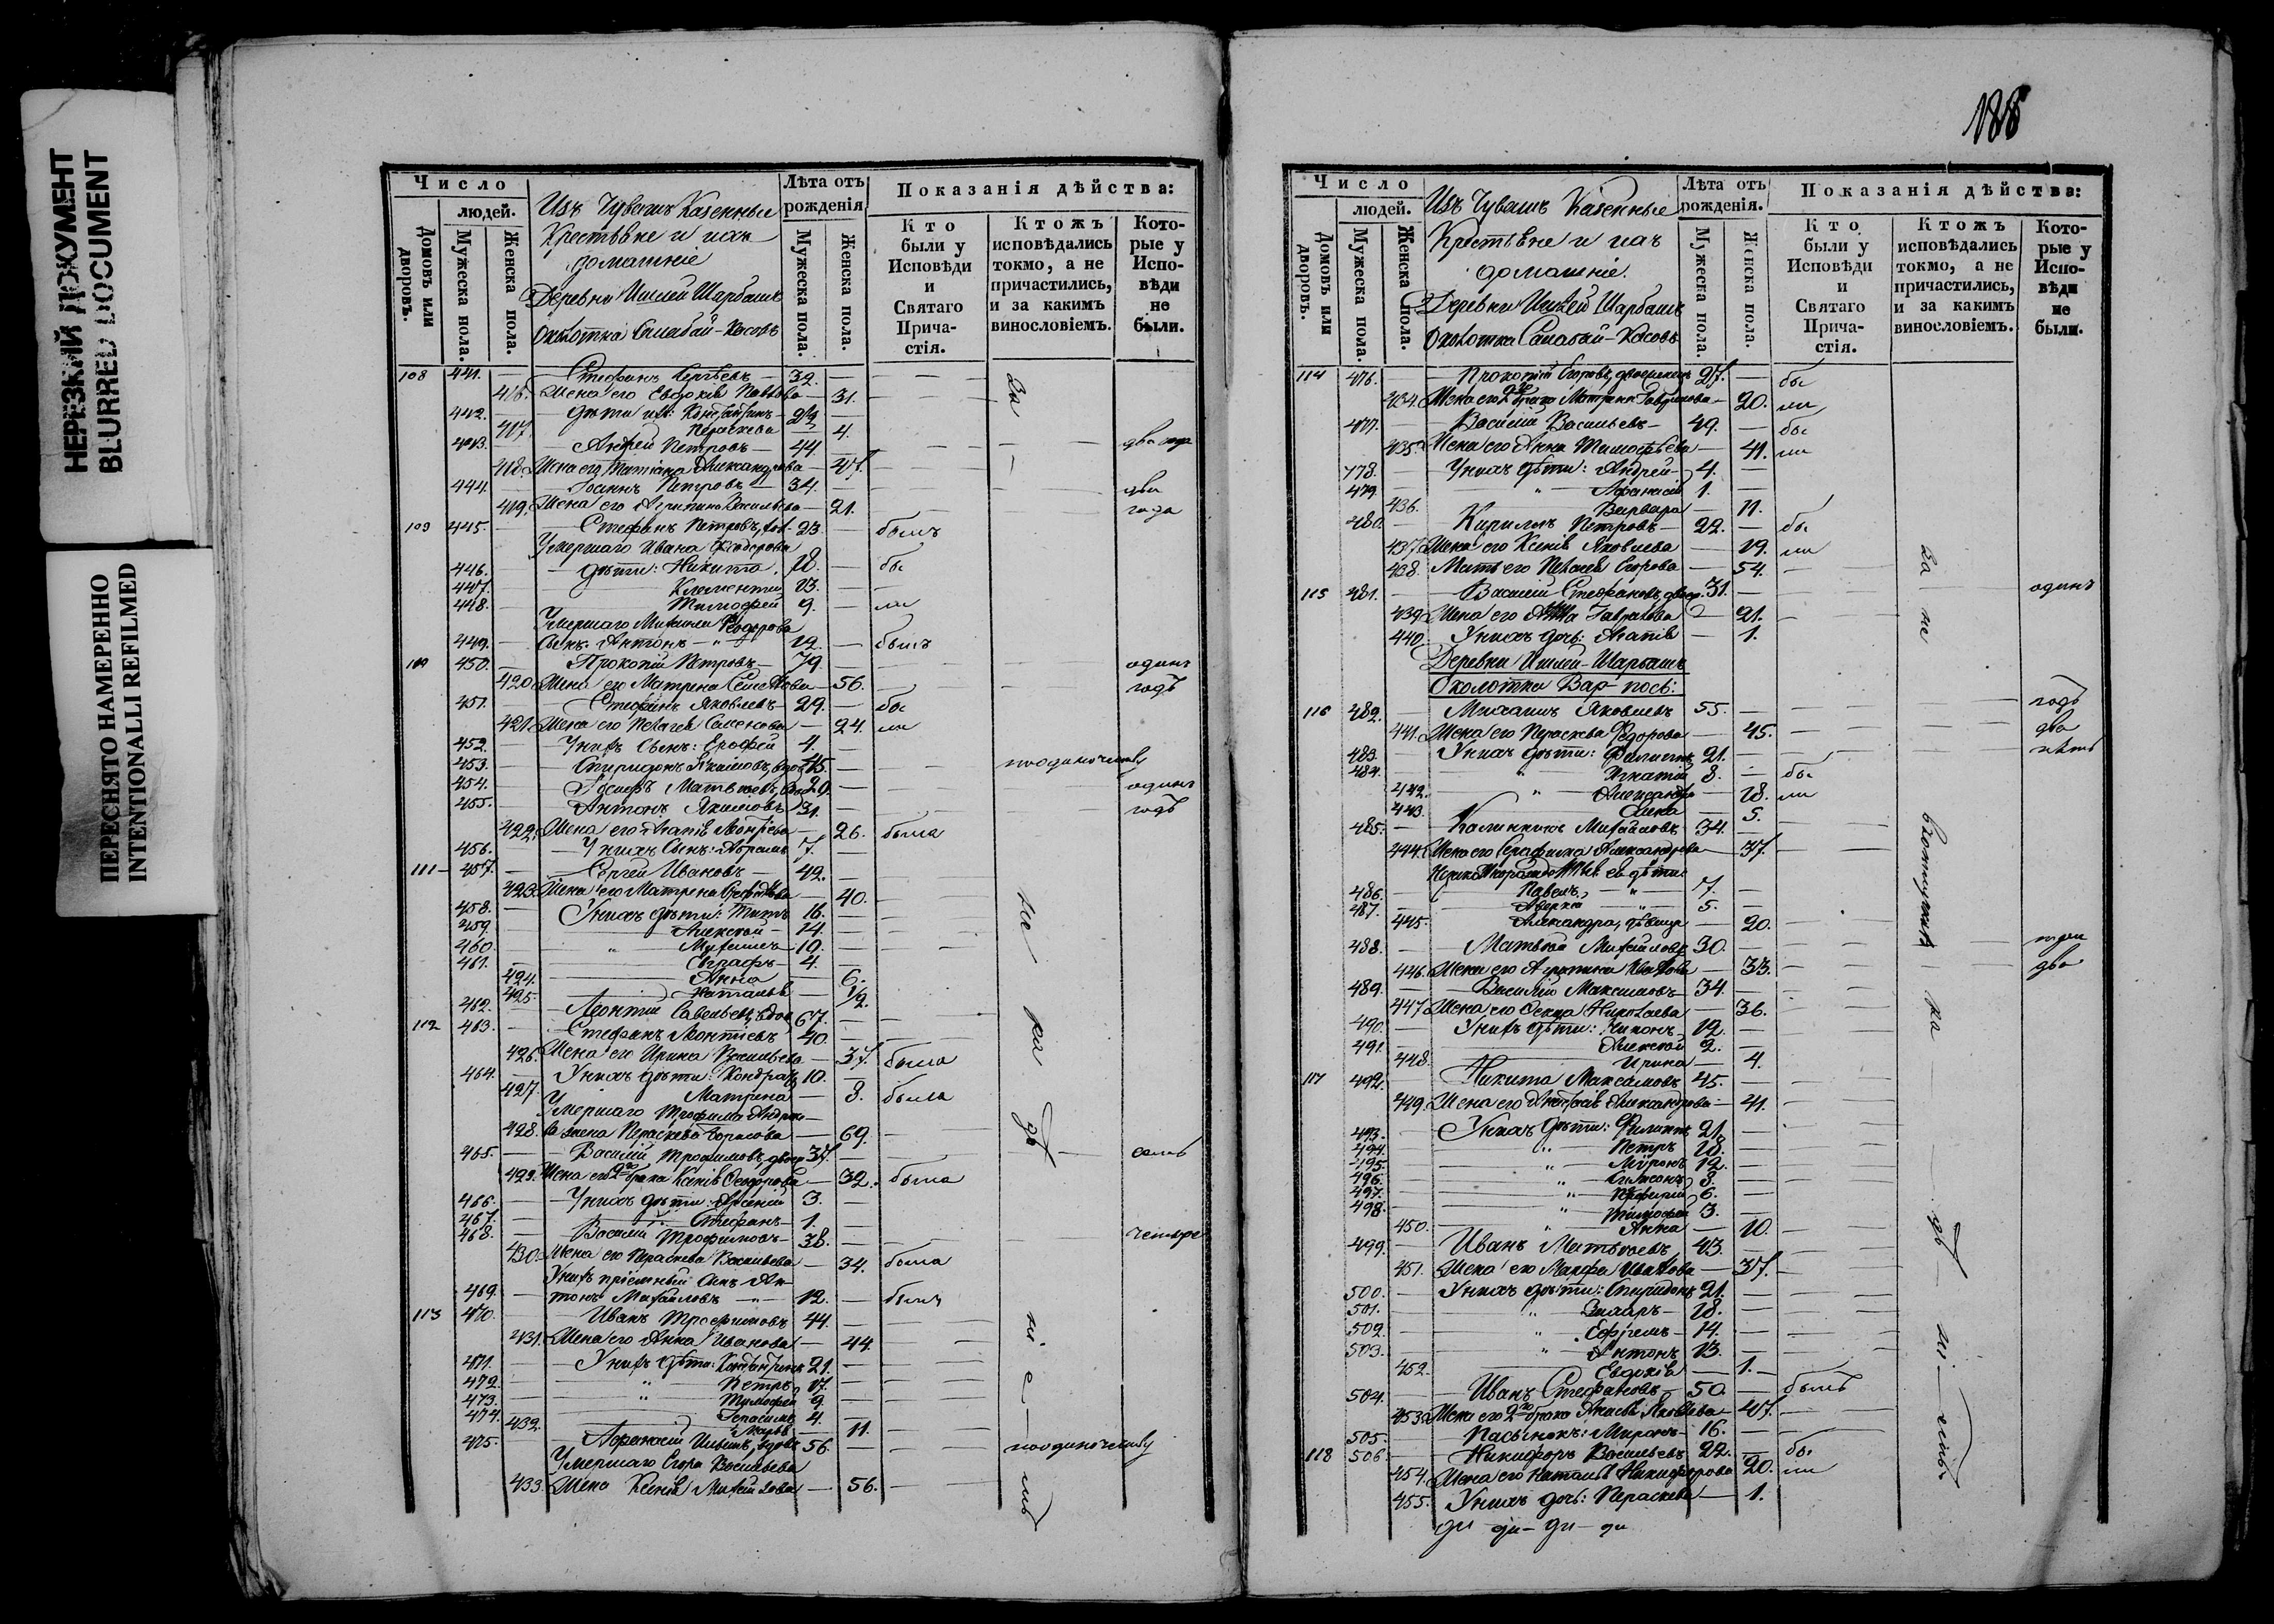 НЕРЕЗКИЙ ДОКУМЕНТ
BLURRED DOCUMENT
ПЕРЕСНЯТО НАМЕРЕННО
INTENTIONALLI REFILMED
Число
Домовъ или дворовъ.
людей.
Мужеска пола.
Женска пола.
Изъ Чувашъ Казенные
Крестьяне и ихъ
домашніе
Деревни Ишлей Шарбашъ
Околотка
Лѣта отъ рожденія
Мужеска пола.
Женска пола.
Показанія дѣйства:
Кто были у Исповѣди и Святаго Прича-стія.
Ктожъ исповѣдались токмо, а не причастились, и за какимъ винословіемъ.
Кото-рые у Испо-вѣди не были.
108 441. Стефанъ Сергѣевъ 32.
416. Жена его Евдокія Павлова 31.
442. дѣти ихъ: Константинъ
417. Параскева 4.
443. Андрей Петровъ 44
418. Жена его Татіана Александрова 47.
444. Іоаннъ Петровъ 34. два
419. Жена его Агрипина Васильева 21. года
109 445. Стефанъ Петровъ, 23. былъ
Умершаго Ивана Ѳеодорова
446. дѣти: Никита 18. бы
447. Климентій 13.
448. Тимофей 9. ли
Умершаго Ѳеодорова
449. Сынъ: Антонъ 12. былъ
450. Прокопій Петровъ 79. одинъ
420. Жена его Матрена Семенова 56. годъ
451. Стефанъ Яковлевъ 29. бы
421. Жена его Пелагея Семенова 24. ли
452. У нихъ сынъ: Ерофей 4.
453. Спиридонъ поодиночеству
454. Іосифъ одинъ
455. Антонъ Якимовъ 31. годъ
422. Жена его Агапія Леонтіева 26. была
456. У нихъ сынъ: Абрамъ 7.
111 457. Сергей Ивановъ 42.
423. Жена его Матрена 40.
458. У нихъ дѣти: Титъ 16.
459. Алексѣй 14.
460. Михаилъ 10.
461. Евграфъ 4.
424. Анна 6.
425. Наталья 1/2.
462. Леонтій Савельевъ, вдов. 67.
112 463. Стефанъ Леонтіевъ 40.
426. Жена его Ирина Васильева 37. была
464. У нихъ дѣти: Кондратъ 10.
427. Матрена 8. была
Умершаго Трофима Андрее-
428. ва жена Параскева Борисова 69.
465. Василій Трофимовъ, двоеж. 37. семь
429. Жена его 2го брака Ксенія Ѳеодорова 32. была
466. У нихъ дѣти: Арсеній 3.
467. Стефанъ 1.
468. Василій Трофимовъ 38. четыре
430. Жена его Параскева Васильева 34. была
У нихъ пріемный сынъ Ан-
469. тонъ Михайловъ 12. былъ
113 470. Иванъ Трофимовъ 44.
431. Жена его Анна Иванова 44.
471. У нихъ дѣти: Константинъ 21.
472. Петръ 17.
473. Тимофей 9.
474. Герасимъ 4.
432. Марья 11.
475. Афанасій Ильинъ, вдовъ 56. поодиночеству
Умершаго Егора Васильева
433. Жена Ксенія Михайлова 56.
За не ра дѣ ніе
188
Число
Домовъ или дворовъ.
людей.
Мужеска пола.
Женска пола.
Изъ Чувашъ Казенные
Крестьяне и ихъ
домашніе.
Деревни Ишлей Шарбашъ
Околотка
Лѣта отъ рожденія.
Мужеска пола.
Женска пола.
Показанія дѣйства:
Кто были у Исповѣди и Святаго Прича-стія.
Ктожъ исповѣдались токмо, а не причастились, и за какимъ винословіемъ.
Кото-рые у Испо-вѣди не были.
114 476. Прокопій Егоровъ, двоеженецъ 27. бы
434. Жена его 2го брака Матрена Гаврилова 20. ли
477. Василій Васильевъ 49. бы
435. Жена его Анна Тимофѣева 41. ли
478. У нихъ дѣти: Андрей 4.
479. Афанасій 1.
436. Варвара 11.
480. Кирилъ Петровъ 22. бы
437. Жена его Ксенія Яковлева 19. ли
438. Мать его Пелагея Егорова 54.
115 481. Василій Стефановъ, двоеж. 31. одинъ
439. Жена его Анна Гаврилова 21.
440. У нихъ дочь: Агапія 1.
Деревни Ишлей-Шарбашъ
Околотка Вар-поси:
116 482. Михаилъ Яковлевъ 55. годъ
441. Жена его Параскева Ѳедорова 45. два
483. У нихъ дѣти: Филиппъ 21.
484. Игнатій 8. бы
442. Александра 18. ли
443. Анна 5.
485. Каллиникъ Михайловъ 34.
444. Жена его Серафима Александрова 37.
486. Павелъ 7.
487. Аверкій 5.
445. Александра, дѣвица 20.
488. Матвѣй Михайловъ 30. три
446. Жена его Агрипина Иванова 33. два
489. Василій Максимовъ 34.
447. Жена его Ѳекла Николаева 36.
490. У нихъ дѣти: 12.
491. Алексѣй 2.
448. Ирина 4.
117 492. Никита Максимовъ 45.
449. Жена его Александрова 41.
493. У нихъ дѣти: Филиппъ 21.
494. Петръ 18.
495. Миронъ 12.
496. Симеонъ 8.
497. Порфирій 6.
498. Тимофей 3.
450. Анна 10.
499. Иванъ Матвѣевъ 43.
451. Жена его Марфа Иванова 37.
500. У нихъ дѣти: Спиридонъ 21.
501. Захаръ 18.
502. Ефремъ 14.
503. Антонъ 13.
452. Евдокія 1.
504. Иванъ Стефановъ 50. былъ
453. Жена его 2го брака Яковлева 47.
505. Пасынокъ: Миронъ 16.
118 506. Никифоръ Васильевъ 22. бы
454. Жена его Наталья Никифорова 20. ли
455. У нихъ дочь: Параскева 1.